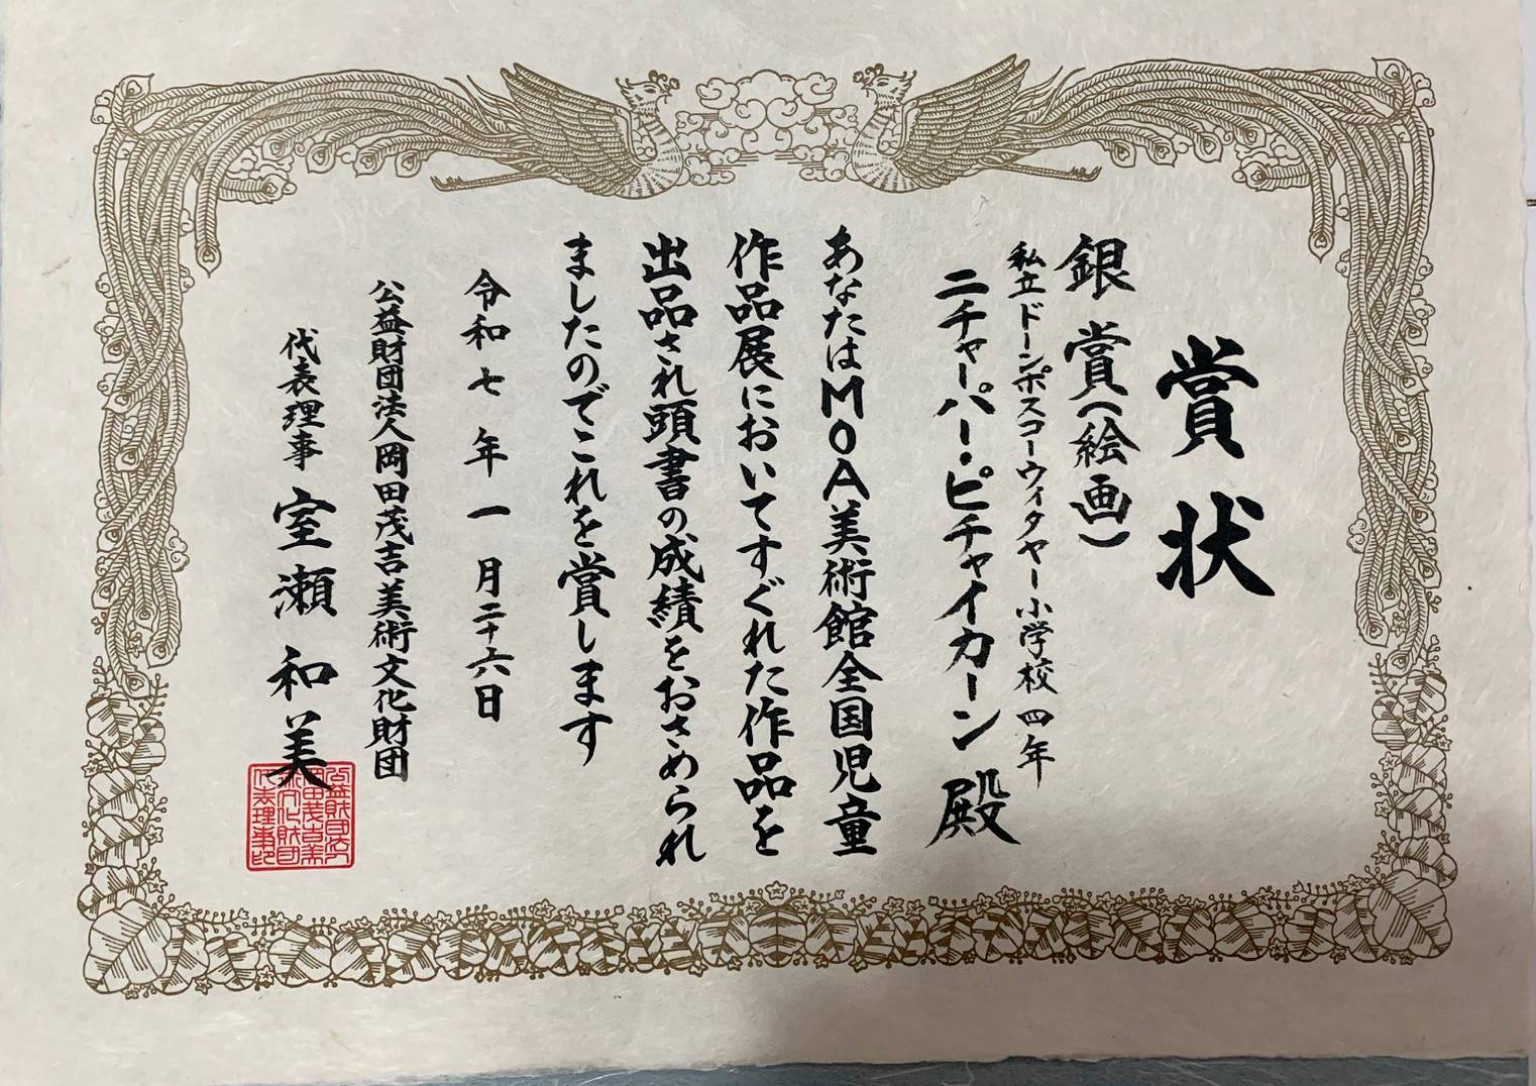 賞状
銀賞(絵画)
私立ドーンボスコーウィタヤー小学校 四年
ニチャーパー・ピチャイカーン 殿
あなたはMOA美術館全国児童
作品展においてすぐれた作品を
出品され頭書の成績をおさめられ
ましたのでこれを賞します
令和七年一月二十六日
公益財団法人岡田茂吉美術文化財団
代表理事 室瀬和美